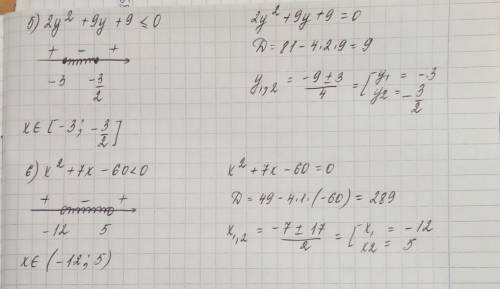 б) 2y² + 9y + 9 ≤ 0
+ − +
-3 -3/2
x ∈ [-3; -3/2]
2y² + 9y + 9 = 0
D = 81 - 4·2·9 = 9
y₁,₂ = (-9 ± 3)/4 = [y₁ = -3
y2 = -3/2
в) x² + 7x - 60 < 0
+ − +
-12 5
x ∈ (-12; 5)
x² + 7x - 60 = 0
D = 49 - 4·1·(-60) = 289
x₁,₂ = (-7 ± 17)/2 = [x₁ = -12
x2 = 5